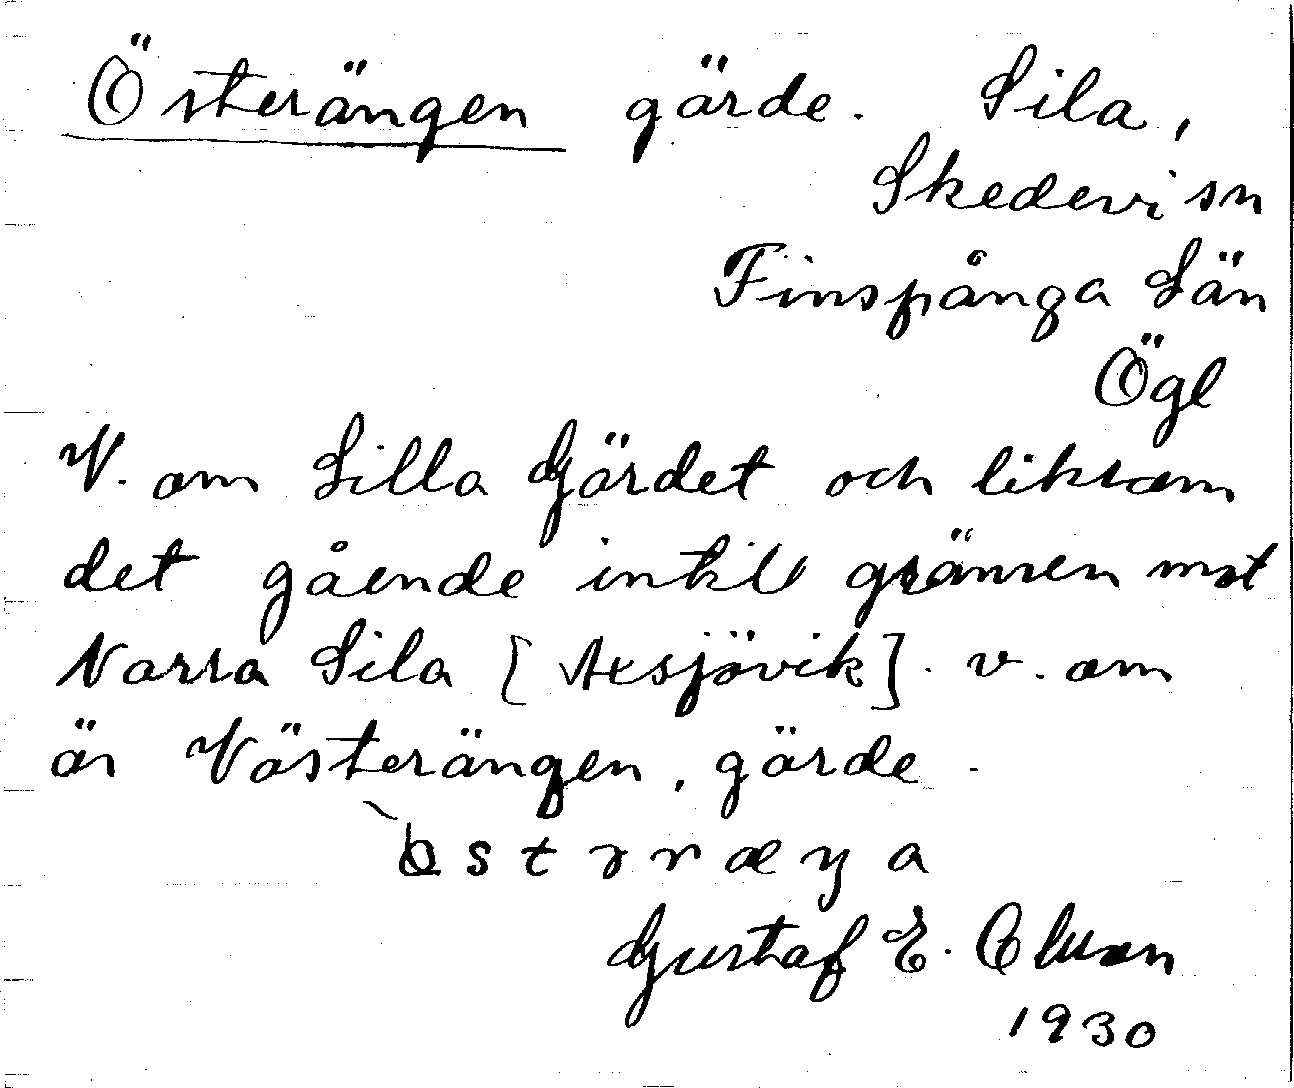 Österängen gärde. Sila,
Skedevi sn
Finspånga Län
Ögl
V. om Lilla Gärdet och liksom
det gående intill gränsen mot
Norra Sila [Axsjövik]. v. om
är Västerängen, gärde.
Gustaf E. Olsson
1930